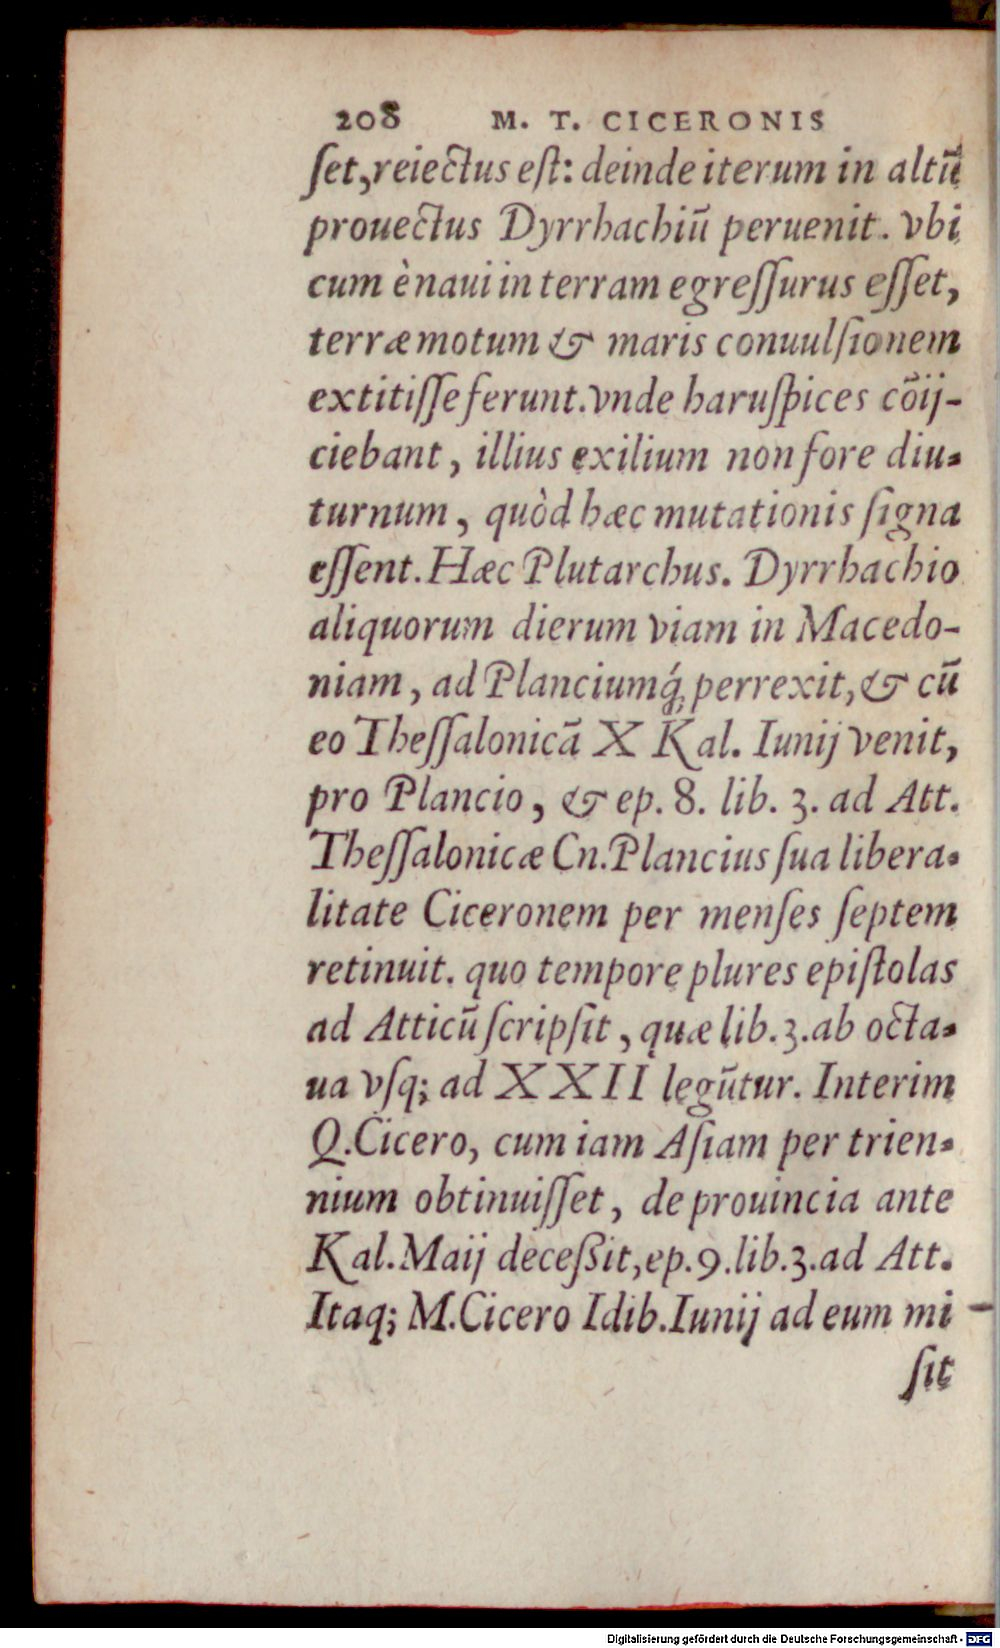 208 M. T. CICERONIS
ſet, reiectus eſt: deinde iterum in altũ
prouectus Dyrrhachiũ peruenit. vbi
cum è naui in terram egreſſurus eſſet,
terræmotum & maris conuulſionem
extitiſſe ferunt. vnde haruſpices cõij-
ciebant, illius exilium non fore diu-
turnum, quòd hæc mutationis ſigna
eſſent. Hæc Plutarchus. Dyrrhachio
aliquorum dierum viam in Macedo-
niam, ad Planciumq́; perrexit, & cũ
eo Theſſalonicã X Kal. Iunij venit,
pro Plancio, & ep. 8. lib. 3. ad Att.
Theſſalonicæ Cn. Plancius ſua libera-
litate Ciceronem per menſes ſeptem
retinuit. quo tempore plures epiſtolas
ad Atticũ ſcripſit, quæ lib. 3. ab octa-
ua vſq; ad XXII legũtur. Interim
Q. Cicero, cum iam Aſiam per trien-
nium obtinuiſſet, de prouincia ante
Kal. Maij deceßit, ep. 9. lib. 3. ad Att.
Itaq; M. Cicero Idib. Iunij ad eum mi-
ſit
Digitalisierung gefördert durch die Deutsche Forschungsgemeinschaft - DFG